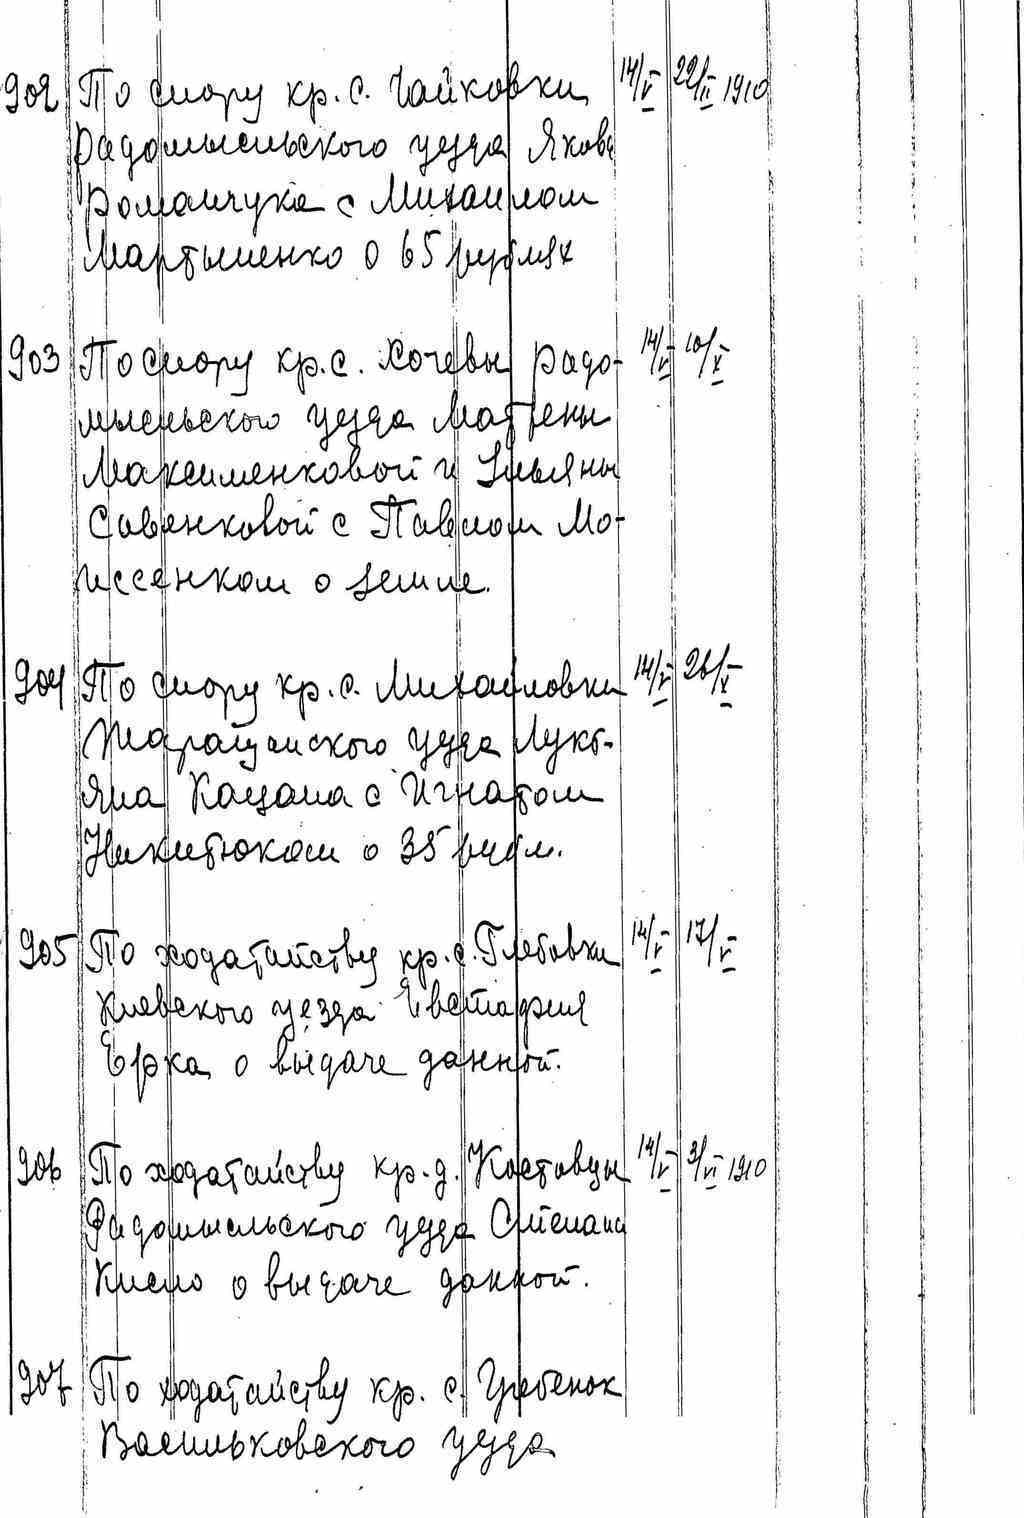 902 По спору кр. с. Чайковки 14/V 22/II 1910
Радомысльского уезда Якова
Романчука с Михаилом
Мартыненко о 65 рублях
903 По спору кр. с. Хочевы Радо- 14/V 10/X
мысльского уезда Матрены
Максименковой и Ульяны
Савенковой с Павлом Мо-
иссенком о земле.
904 По спору кр. с. Михайловки 14/V 26/X
Таращанского уезда Лукь-
яна Кацана с Игнатом
Никитюком о 35 рубл.
905 По ходатайству кр. с. Глебовки 14/V 17/V
Киевского уезда Евстафия
Ерка о выдаче данной.
906 По ходатайству кр. д. Костовцы 14/V 3/VI 1910
Радомысльского уезда Степана
Кисло о выдаче данной.
907 По ходатайству кр. с. Гребенок
Васильковского уезда